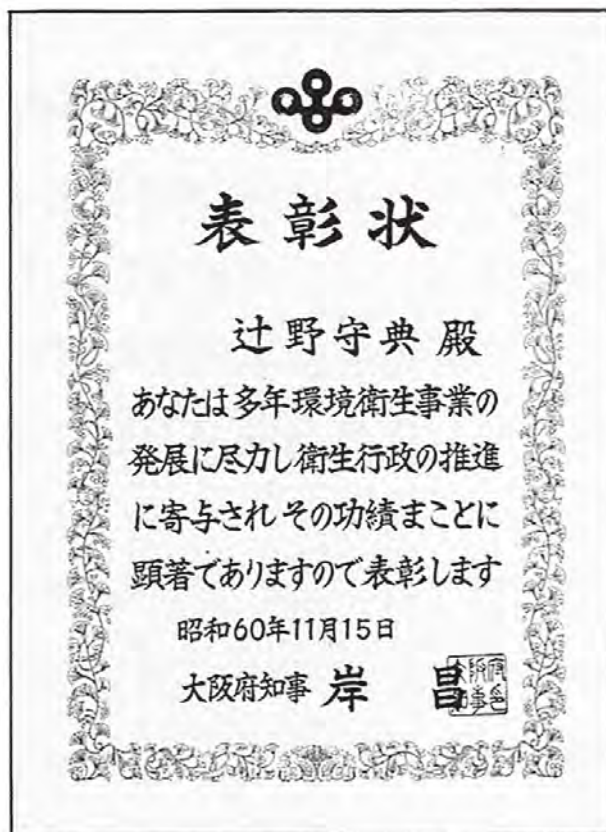 表彰状
辻野守典 殿
あなたは多年環境衛生事業の
発展に尽力し衛生行政の推進
に寄与され その功績まことに
顕著でありますので表彰します
昭和60年11月15日
大阪府知事 岸 昌